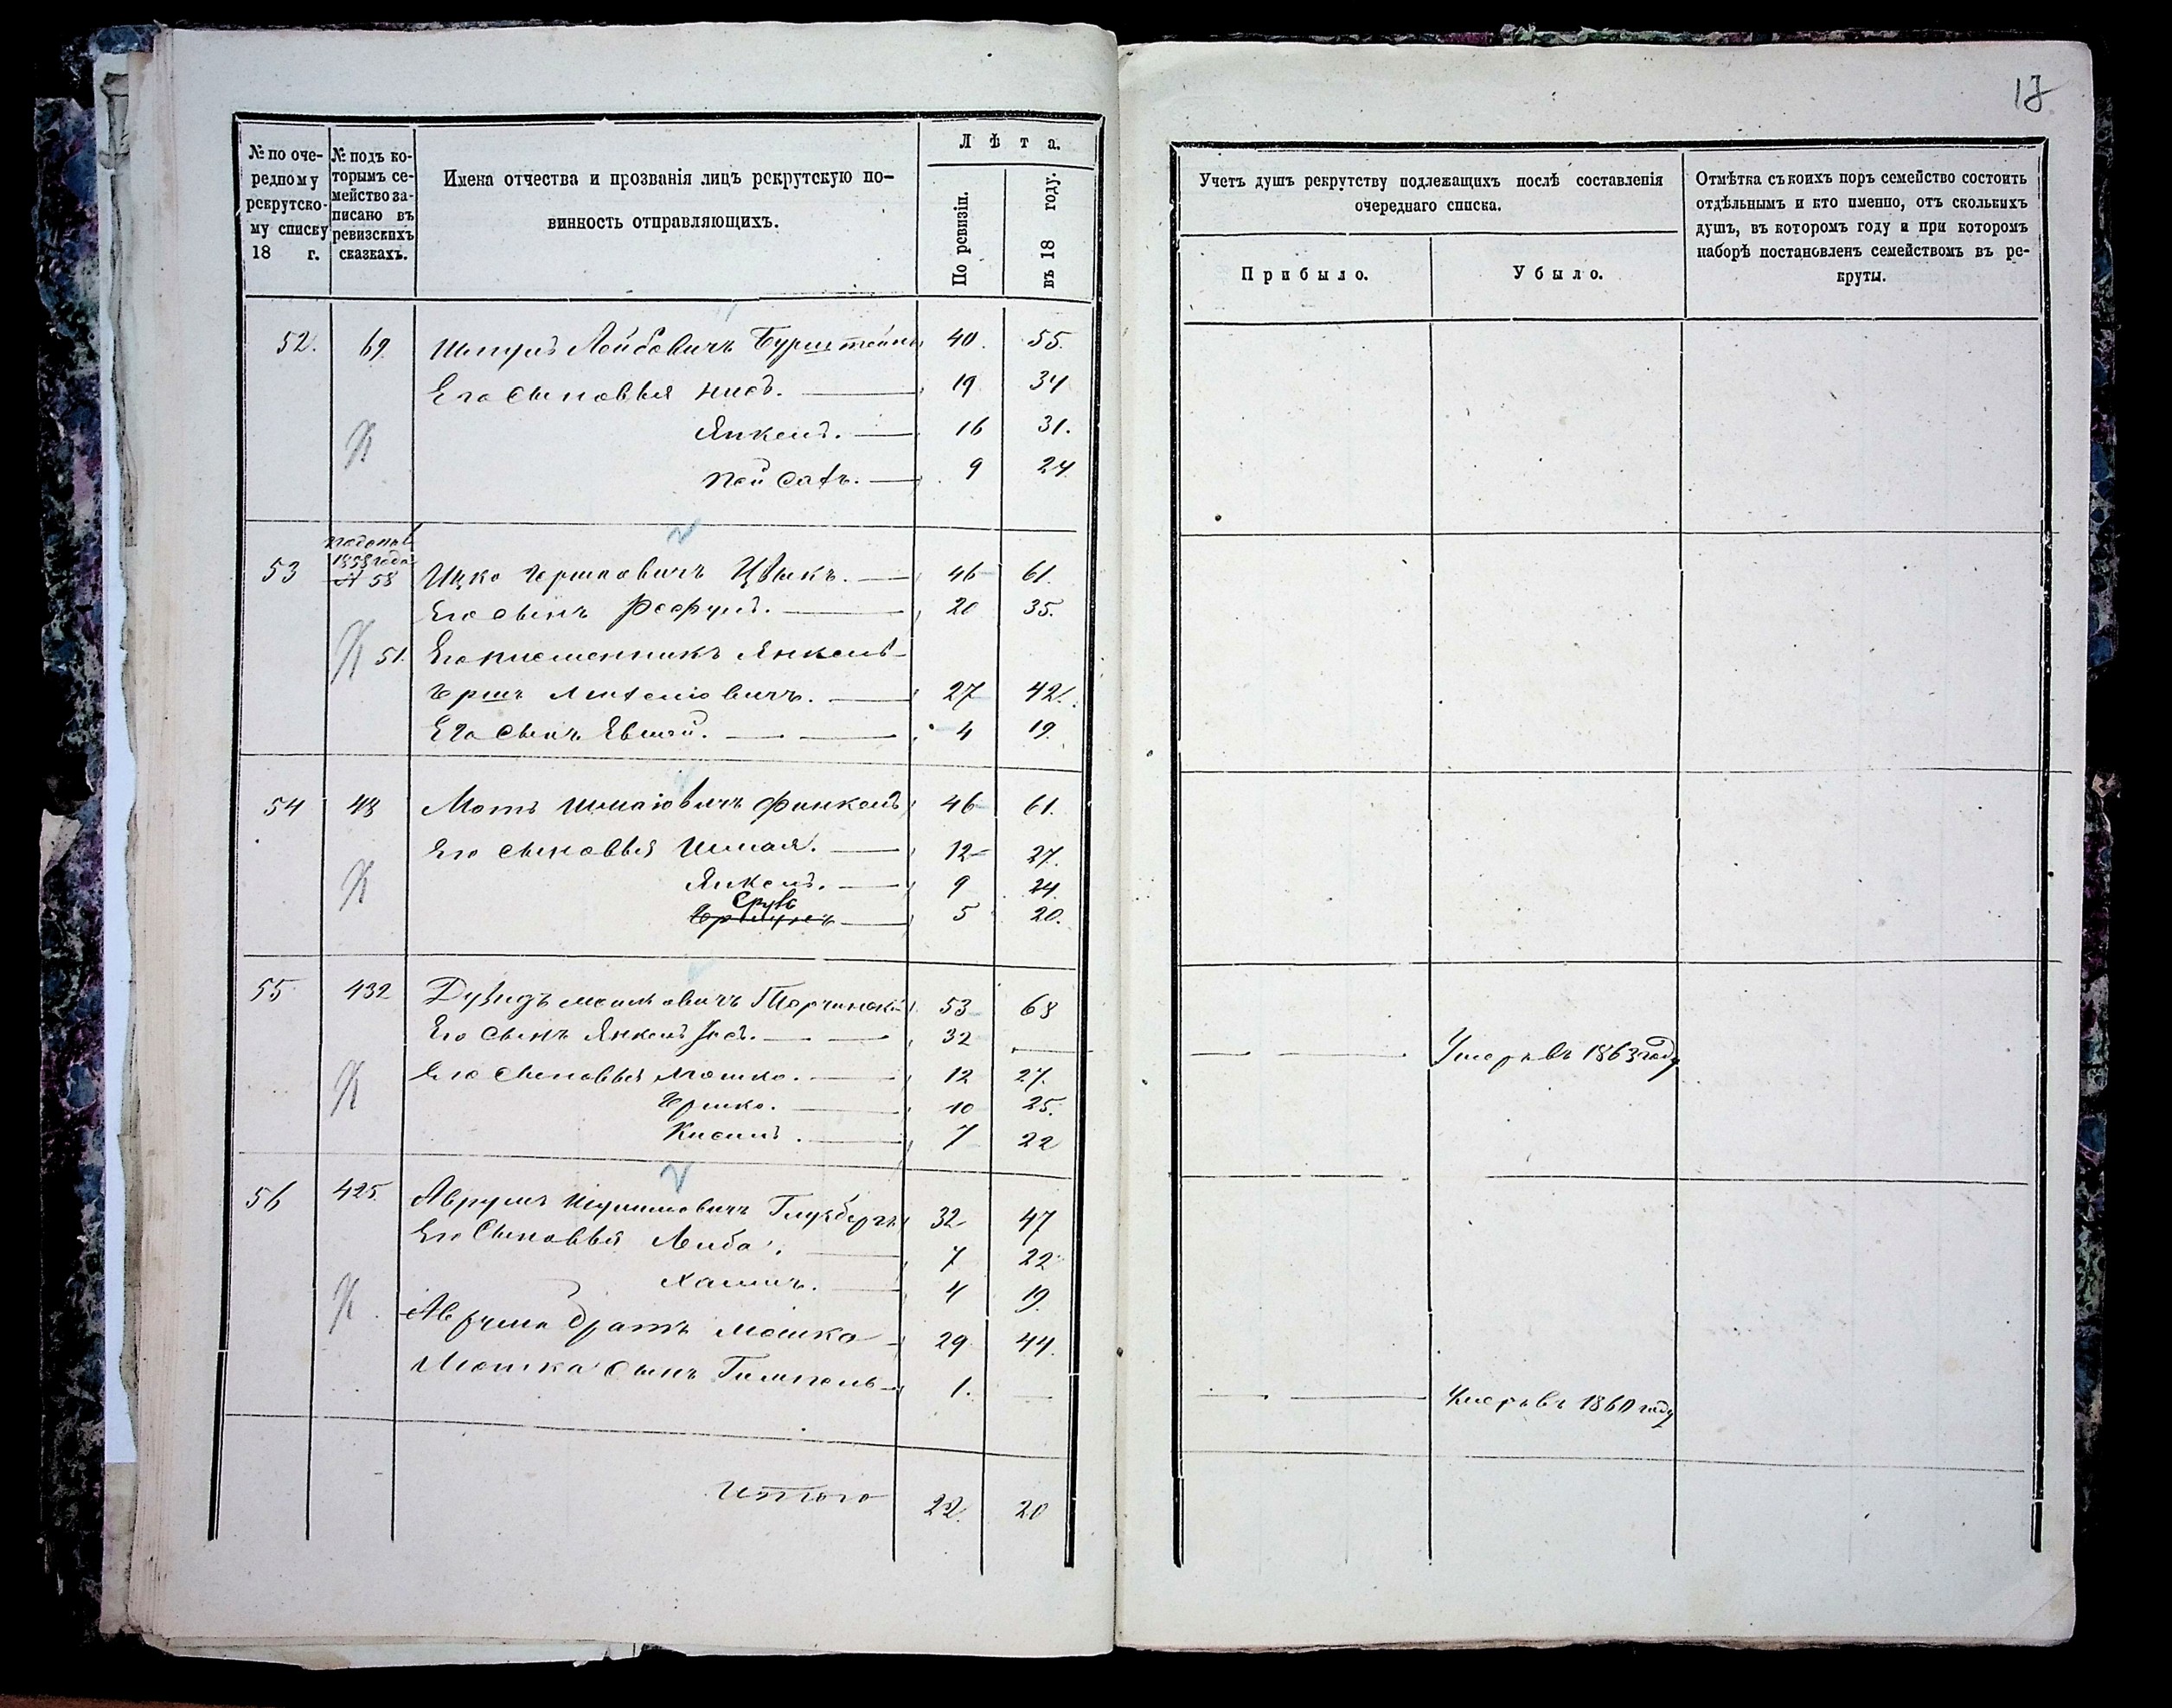 17
№ по оче-
редному
рекрутско-
му списку
18 г.
№ подъ ко-
торымъ се-
мейство за-
писано въ
ревизскихъ
сказкахъ.
Имена отчества и прозванія лицъ рекрутскую по-
винность отправляющихъ.
Лѣта.
По ревизіи.
въ 18 году.
Учетъ душъ рекрутству подлежащихъ послѣ составленія
очереднаго списка.
Прибыло.
Убыло.
Отмѣтка съ коихъ поръ семейство состоитъ
отдѣльнымъ и кто именно, отъ сколькихъ
душъ, въ которомъ году и при которомъ
наборѣ постановленъ семействомъ въ ре-
круты.
52. 69 Лейбовичъ Бурштейнъ 40. 55.
Его сыновья 19 34
Янкель. 16 31.
Пейсахъ. 9 24
1858 года
53 № 58 Ицко Гершковичъ Цвыкъ. 46 61.
Его сынъ 20 35.
51. Его племенникъ Янкель-
Гершъ 27 42.
Его сынъ Евшей. 4 19.
54 48 Мотъ Шмаіовичъ Финкель 46 61.
Его сыновья Шмая. 12 27.
Янкель. 9 24.
Сруль
5 20.
55 432 Дувидъ Мошковичъ Торчинскій 53 68
Его сынъ Янкель Іос. 32 — Умеръ въ 1863 году
Его сыновья Мошко. 12 27.
Гершко. 10 25.
Кисель. 7 22
56 425. Аврумъ Шулимовичъ Глузбергъ 32 47
Его сыновья Лейба. 7 22
Хаимъ. 4 19.
Аврума братъ Мошка 29 44.
Мошка сынъ Гимпель 1. — Умеръ въ 1860 году
Итого 22. 20